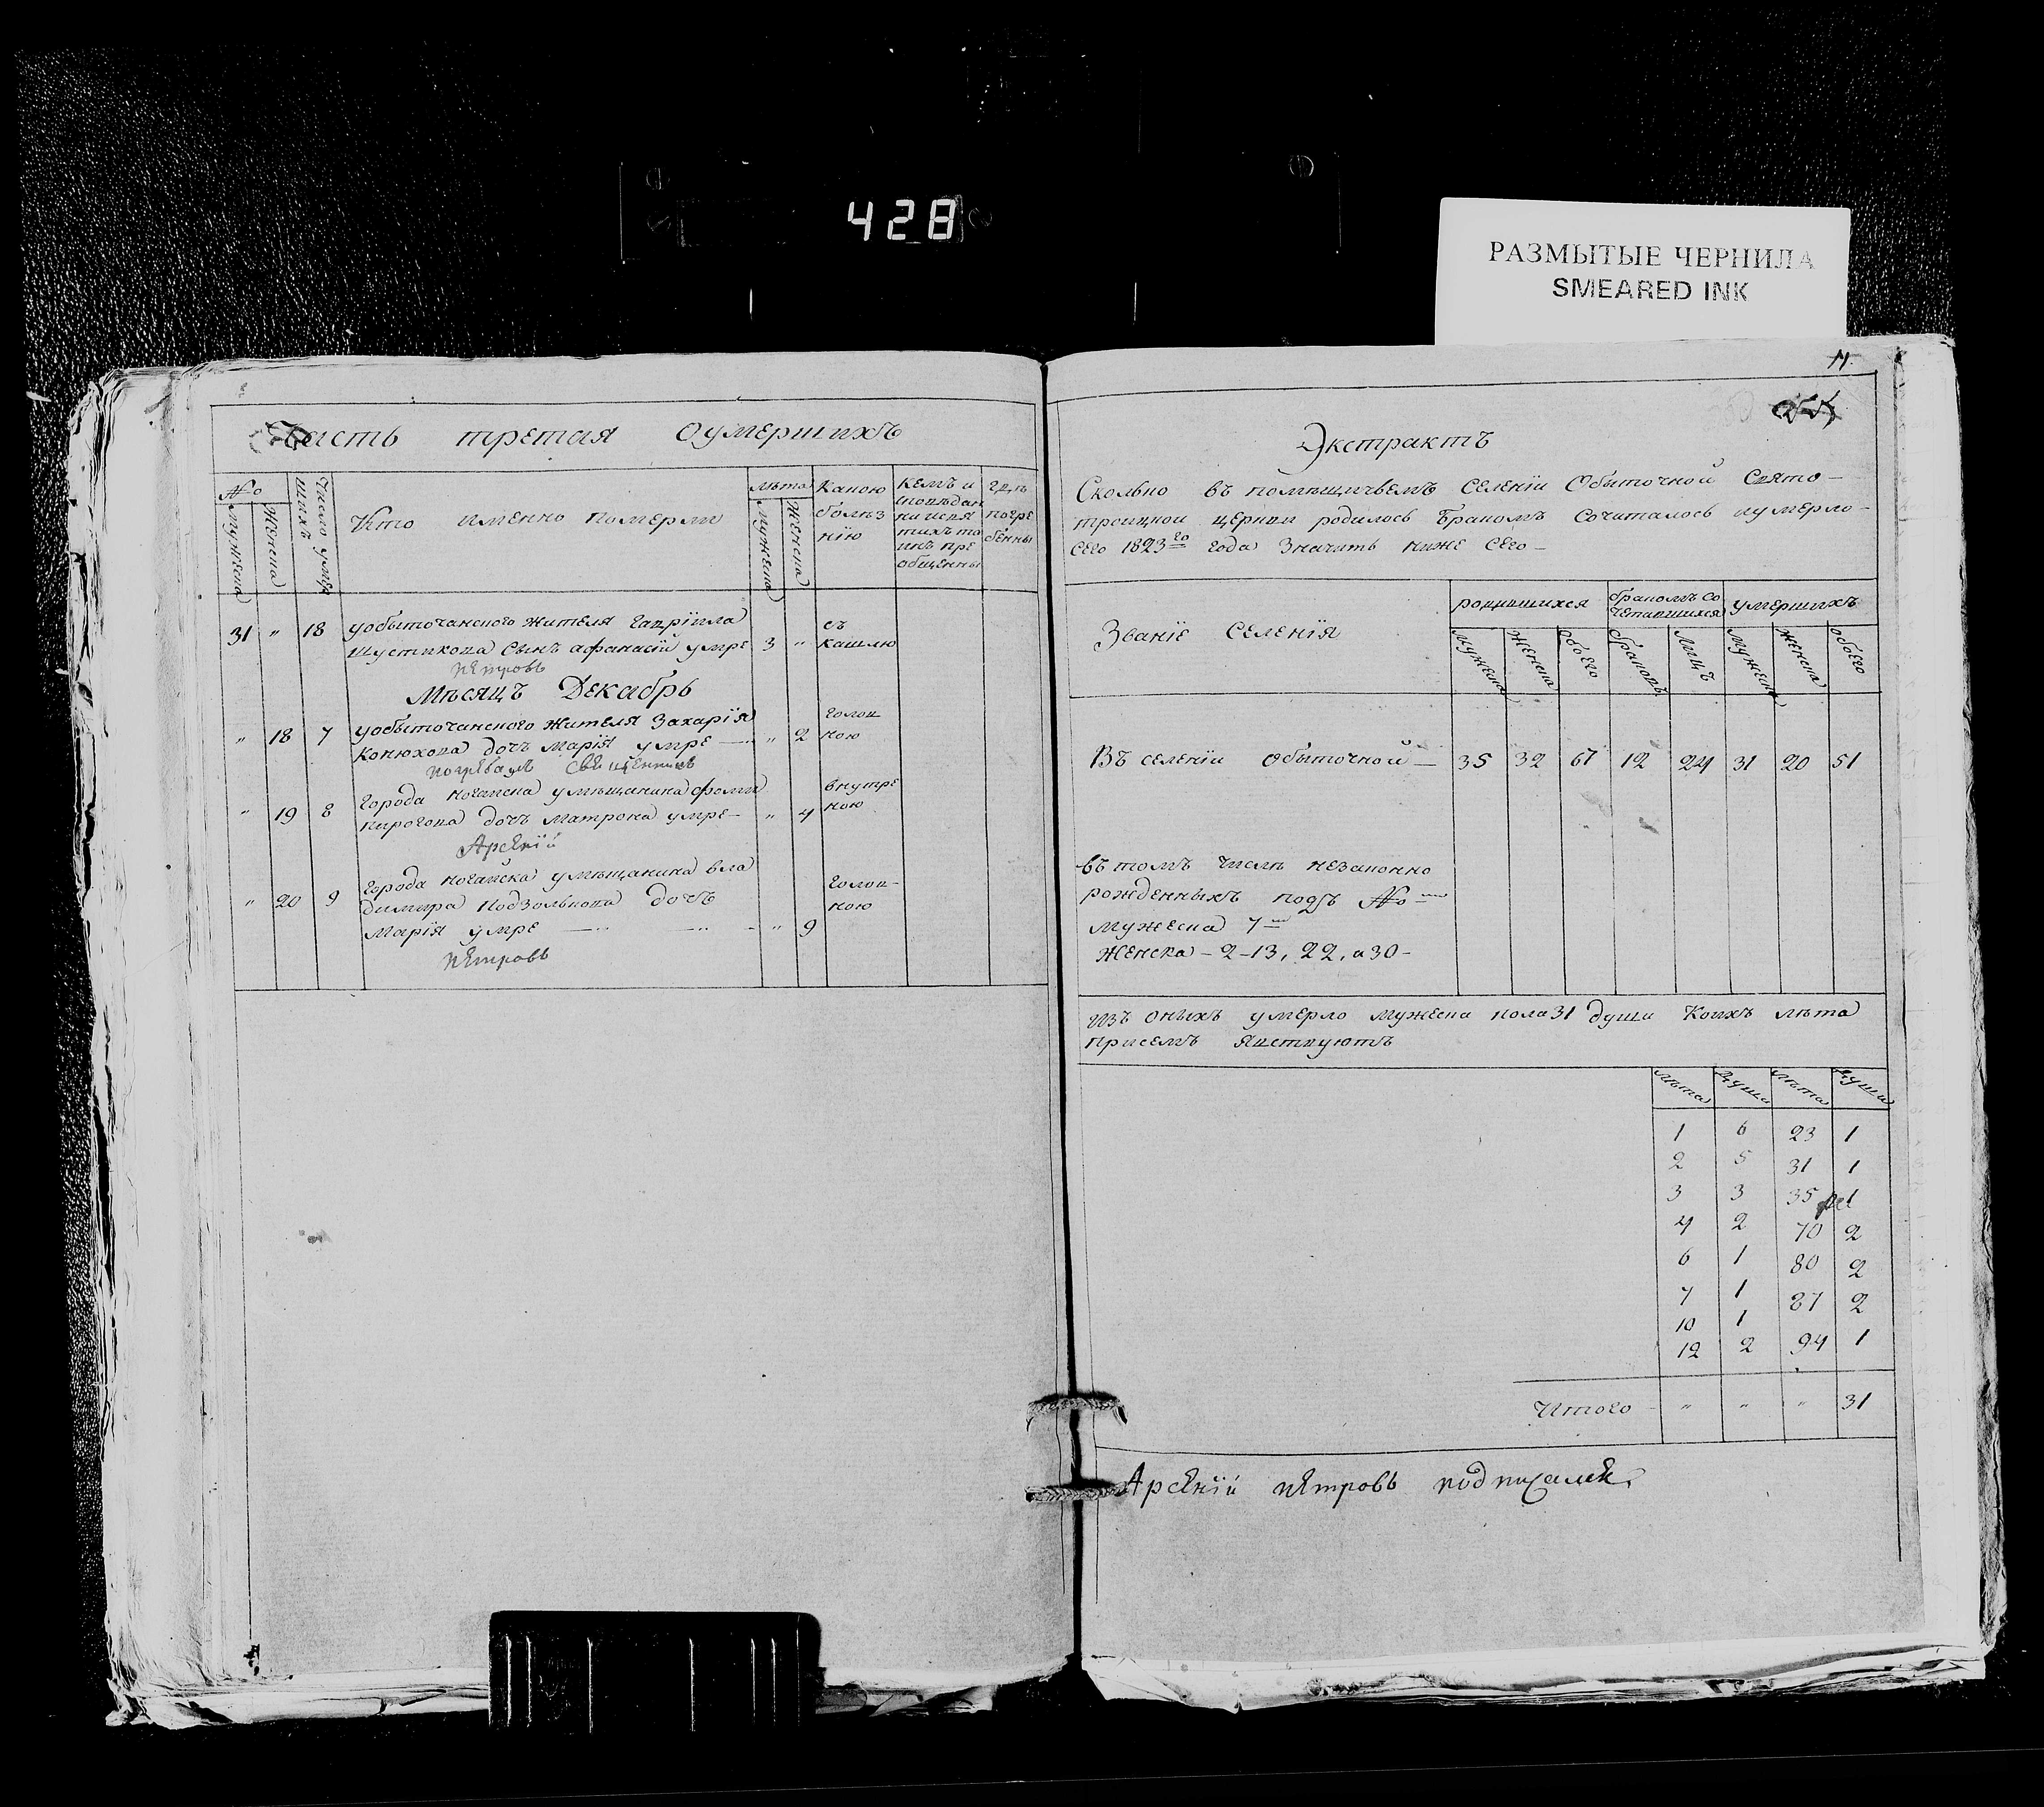 428
РАЗМЫТЫЕ ЧЕРНИЛА
SMEARED INK
Часть третая оумершихъ
№
мужеска
женска
Число умершихъ
Кто именно померли
лѣта
мужеска
женска
Какою
болѣз
нію
Кемъ и
исповѣдан
ни и свя
тихъ та
инъ прі
общенны
гдѣ
погре
бенны
31 " 18 у обыточанского жителя Гавріила 3 " съ
Шустикова сынъ Афанасій умре кашлю
пЕтровъ
Мѣсяцъ Декабрь
" 18 7 у обыточанского жителя Захарія " 2 голов
Конюхова дочъ Марія умре — кою
погребалъ свещенникъ
" 19 8 Города Ногайска у мѣщанина Фомы внутре
Пирогова дочъ Матрона умре — " 4 ною
АрсЕній
" 20 9 Города Ногайска у мѣщанина Вла голов-
димира Подзолькова дочъ кою
Марія умре — " 9
пЕтровъ
11.
Экстрактъ
Сколько въ помѣщичьемъ селеніи Обыточной Свято-
троицкой церкви родилось бракомъ сочиталось и умерло-
сего 1823го года значитъ ниже сего-
Званіе Селенія
родившихся
бракомъ со
четавшихся
умершихъ
мужеска
женска
обоего
браковъ
Лицъ
мужеска
женска
обоего
Въ селеніи Обыточной — 35 32 67 12 24 31 20 51
въ томъ числѣ незаконно
рожденныхъ подъ №
мужеска 7
Женска - 2-13, 22, а 30-
Изъ оныхъ умерло мужеска пола 31 души коихъ лѣта
при семъ явствуютъ
лѣта души лѣта души
1 6 23 1
2 5 31 1
3 3 35 1
4 2 70 2
6 1 80 2
7 1 87 2
10 1 94 1
12 2
Итого - " " " 31
АрсЕній пЕтровъ подписался